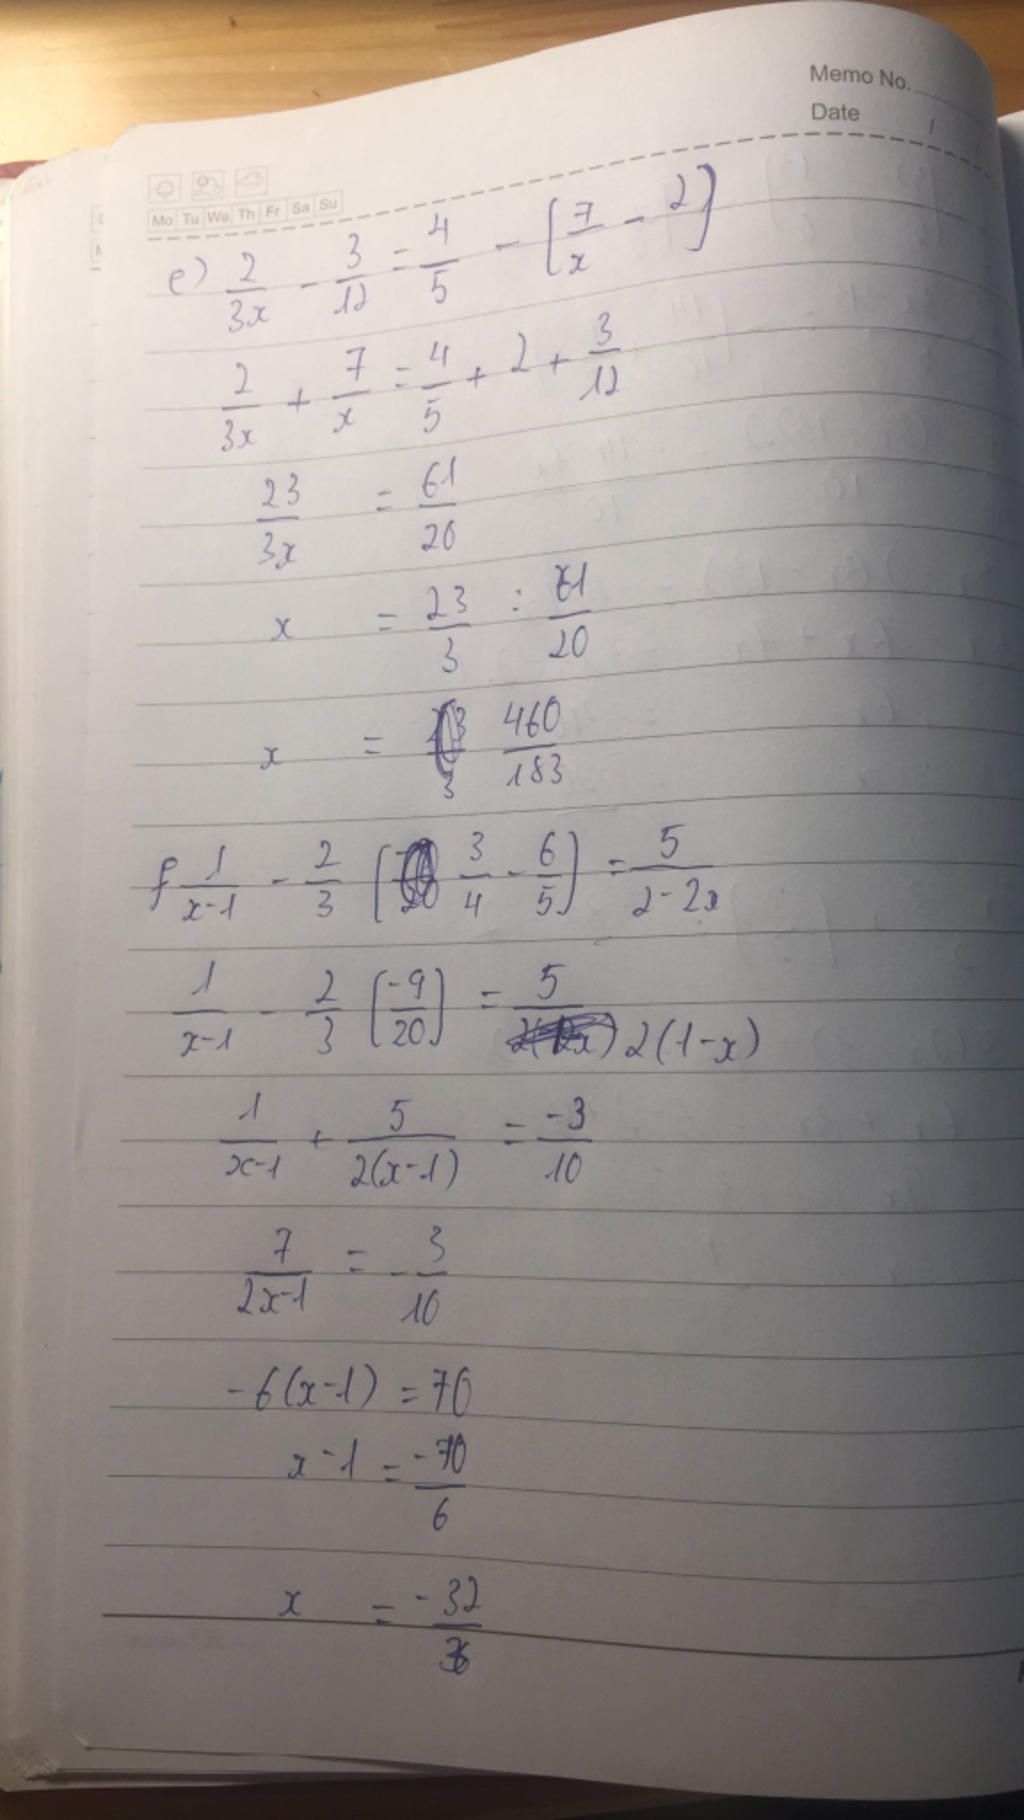 Memo No.
Date /
Mo Tu We Th Fr Sa Su
e) 2/3x - 3/12 = 4/5 - (7/x - 2)
2/3x + 7/x = 4/5 + 2 + 3/12
23/3x = 61/20
x = 23/3 : 61/20
x = 460/183
f 1/x-1 - 2/3 (3/4 - 6/5) = 5/2-2x
1/x-1 - 2/3 (-9/20) = 5/2(1-x)
1/x-1 + 5/2(x-1) = -3/10
7/2x-1 = -3/10
-6(x-1) = 70
x-1 = -70/6
x = -32/3